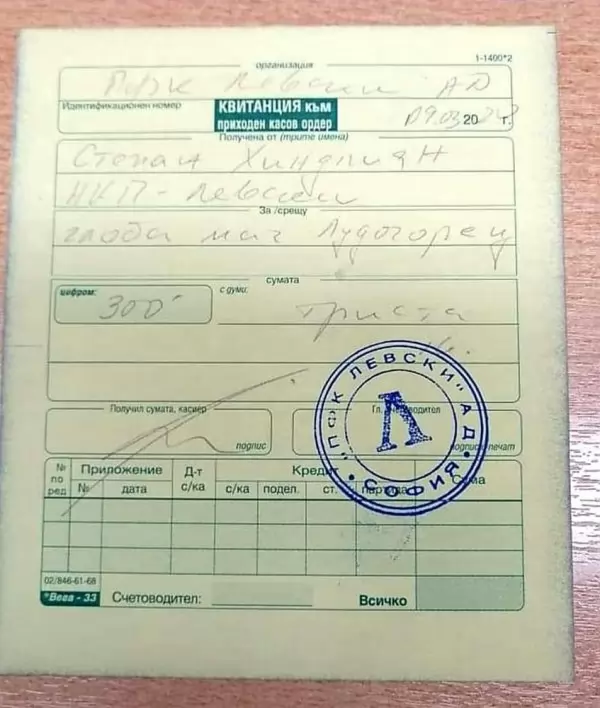 1-1400*2
организация
ПФК Левски АД
Идентификационен номер
КВИТАНЦИЯ към
приходен касов ордер
09.03. 20 г.
Получена от (трите имена)
Степан Хиндлиян
НКП - Левски
За /срещу
глоба мач Лудогорец
сумата
цифром: 300
с думи: триста
Получил сумата, касиер
Гл. счетоводител
подпис
подпис, печат
"ПФК ЛЕВСКИ" АД
СОФИЯ
Л
№ по ред
Приложение
Д-т с/ка
Кредит
Сума
№
дата
с/ка
подел.
ст.
партида
02/846-61-68
"Вега - 33
Счетоводител:
Всичко